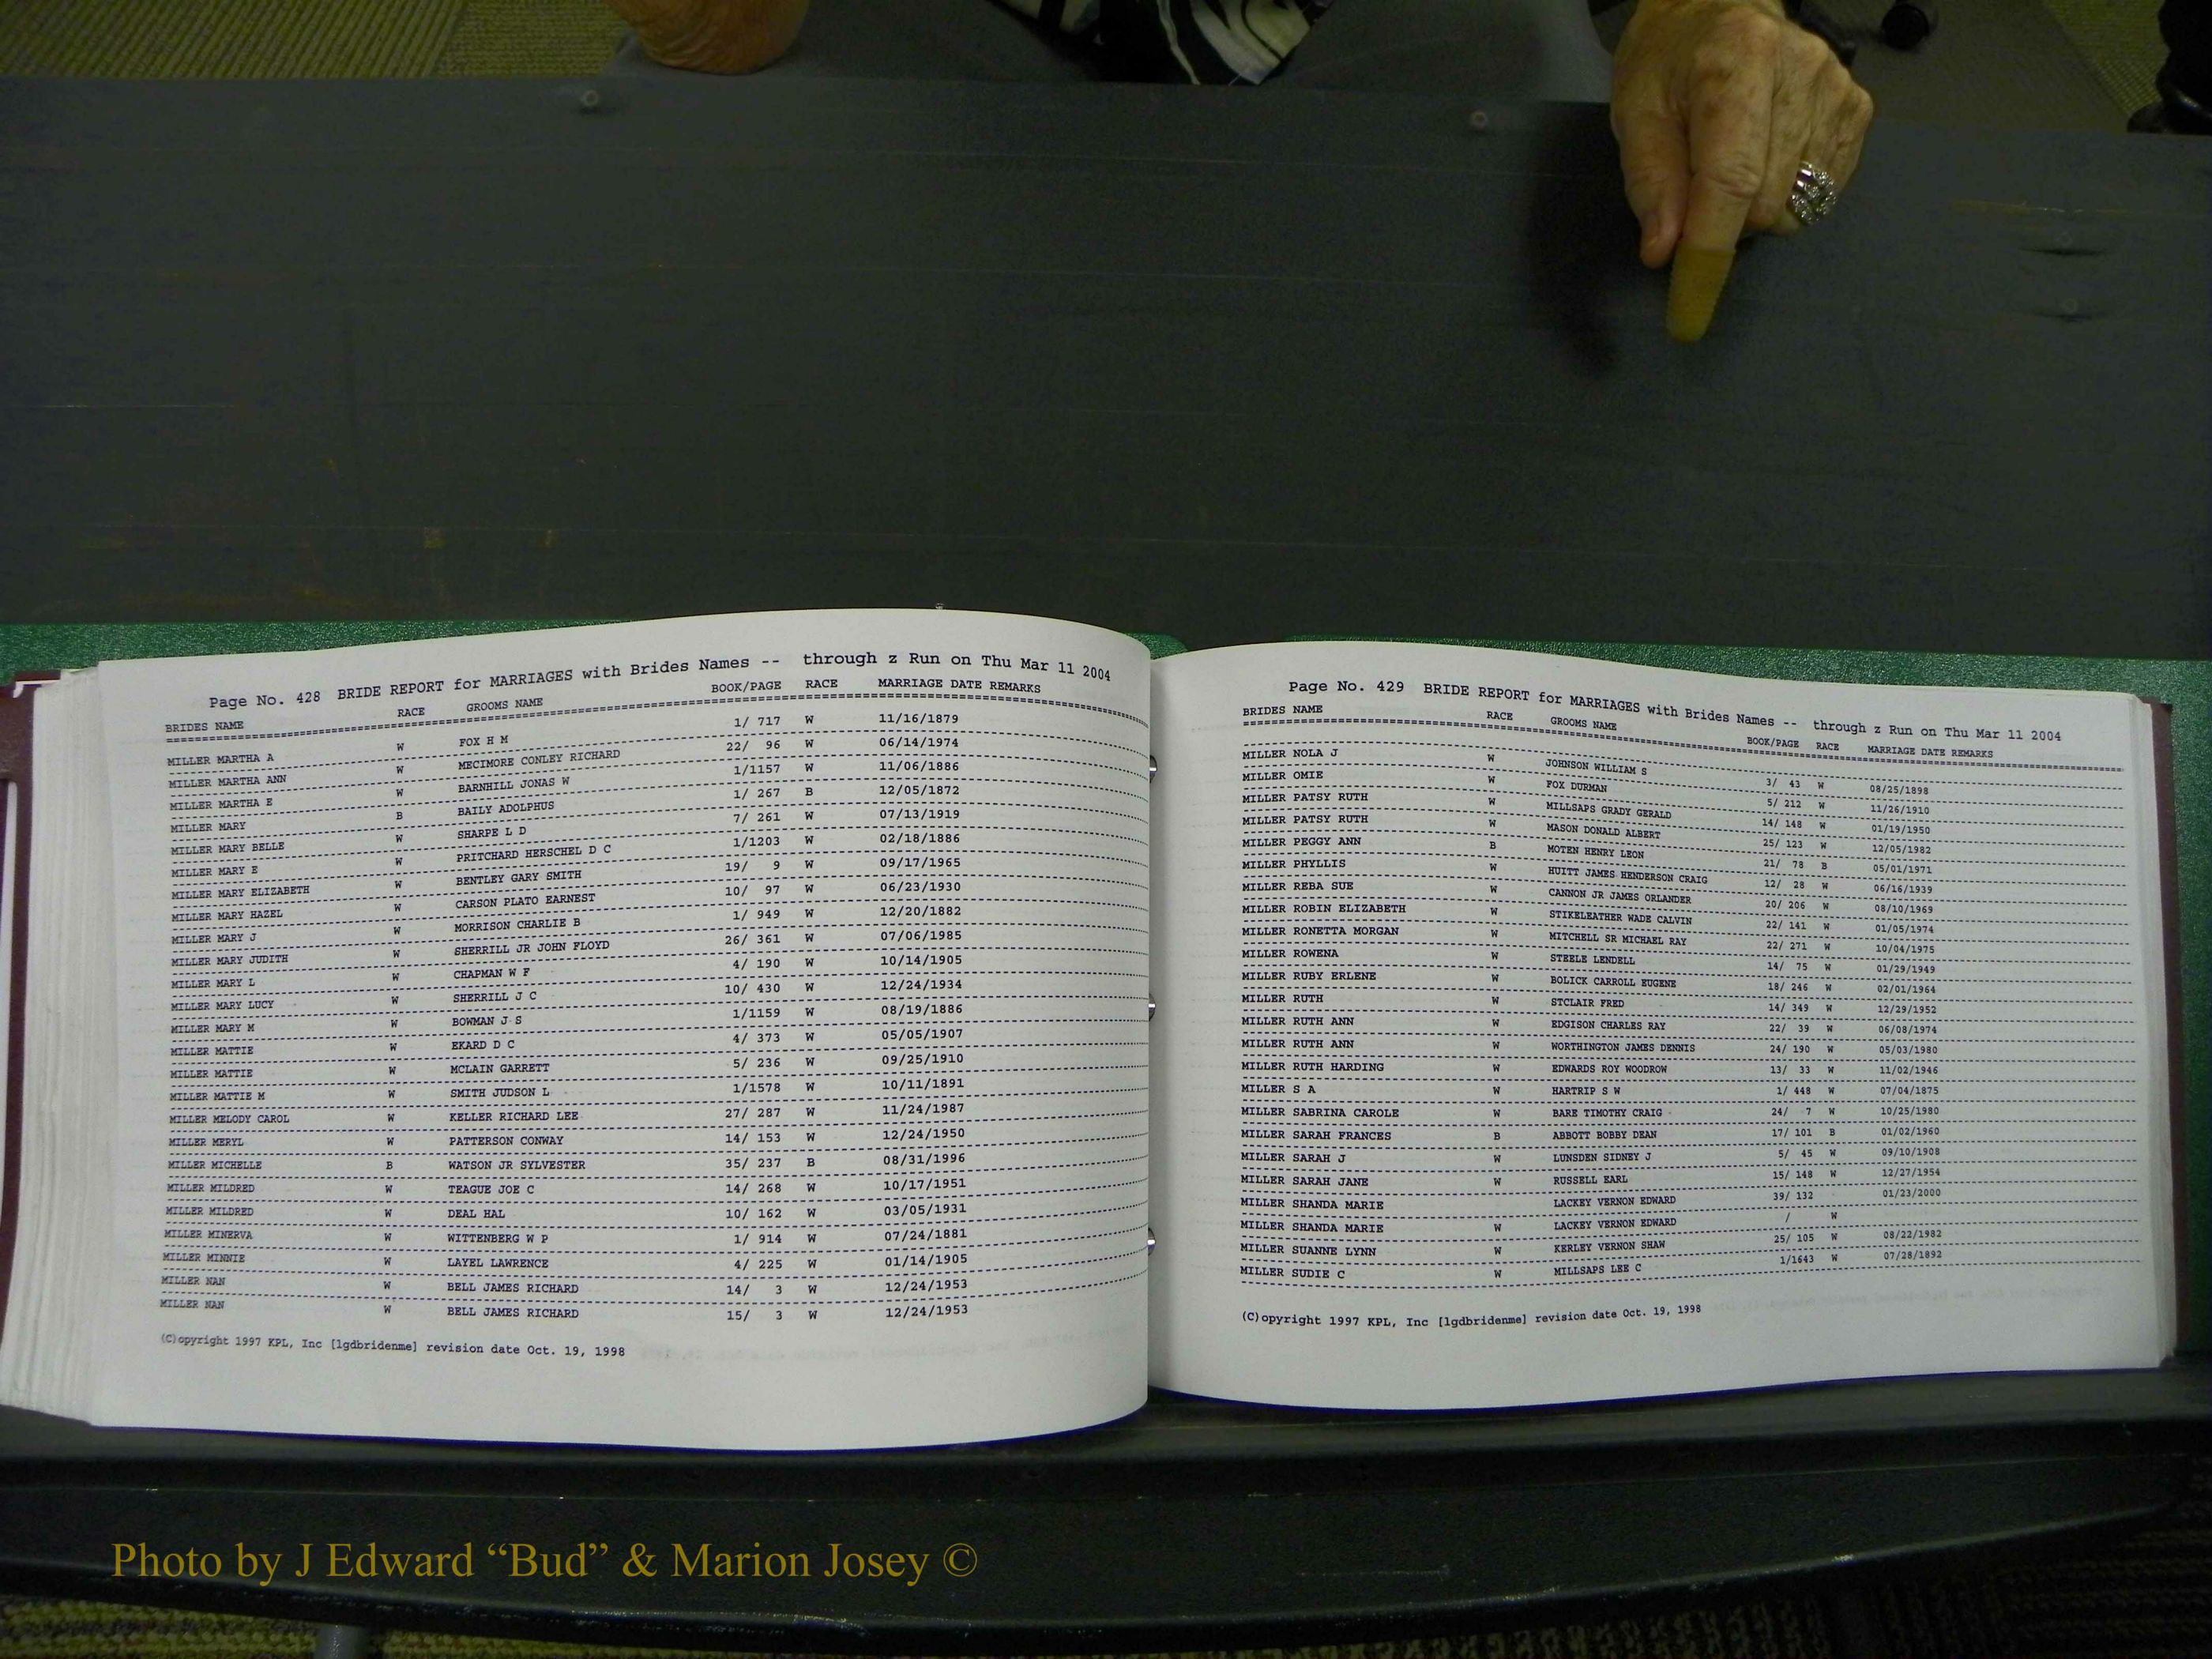 Page No. 428 BRIDE REPORT for MARRIAGES with Brides Names -- through z Run on Thu Mar 11 2004
BRIDES NAME RACE GROOMS NAME BOOK/PAGE RACE MARRIAGE DATE REMARKS
MILLER MARTHA A W FOX H M 1/ 717 W 11/16/1879
MILLER MARTHA ANN W MECIMORE CONLEY RICHARD 22/ 96 W 06/14/1974
MILLER MARTHA E W BARNHILL JONAS W 1/1157 W 11/06/1886
MILLER MARY B BAILY ADOLPHUS 1/ 267 B 12/05/1872
MILLER MARY BELLE W SHARPE L D 7/ 261 W 07/13/1919
MILLER MARY E W PRITCHARD HERSCHEL D C 1/1203 W 02/18/1886
MILLER MARY ELIZABETH W BENTLEY GARY SMITH 19/ 9 W 09/17/1965
MILLER MARY HAZEL W CARSON PLATO EARNEST 10/ 97 W 06/23/1930
MILLER MARY J W MORRISON CHARLIE B 1/ 949 W 12/20/1882
MILLER MARY JUDITH W SHERRILL JR JOHN FLOYD 26/ 361 W 07/06/1985
MILLER MARY L W CHAPMAN W F 4/ 190 W 10/14/1905
MILLER MARY LUCY W SHERRILL J C 10/ 430 W 12/24/1934
MILLER MARY M W BOWMAN J S 1/1159 W 08/19/1886
MILLER MATTIE W EKARD D C 4/ 373 W 05/05/1907
MILLER MATTIE W MCLAIN GARRETT 5/ 236 W 09/25/1910
MILLER MATTIE M W SMITH JUDSON L 1/1578 W 10/11/1891
MILLER MELODY CAROL W KELLER RICHARD LEE 27/ 287 W 11/24/1987
MILLER MERYL W PATTERSON CONWAY 14/ 153 W 12/24/1950
MILLER MICHELLE B WATSON JR SYLVESTER 35/ 237 B 08/31/1996
MILLER MILDRED W TEAGUE JOE C 14/ 268 W 10/17/1951
MILLER MILDRED W DEAL HAL 10/ 162 W 03/05/1931
MILLER MINERVA W WITTENBERG W P 1/ 914 W 07/24/1881
MILLER MINNIE W LAYEL LAWRENCE 4/ 225 W 01/14/1905
MILLER NAN W BELL JAMES RICHARD 14/ 3 W 12/24/1953
MILLER NAN W BELL JAMES RICHARD 15/ 3 W 12/24/1953
(C)opyright 1997 KPL, Inc [lgdbridenme] revision date Oct. 19, 1998
Page No. 429 BRIDE REPORT for MARRIAGES with Brides Names -- through z Run on Thu Mar 11 2004
BRIDES NAME RACE GROOMS NAME BOOK/PAGE RACE MARRIAGE DATE REMARKS
MILLER NOLA J W JOHNSON WILLIAM S 3/ 43 W 08/25/1898
MILLER OMIE W FOX DURMAN 5/ 212 W 11/26/1910
MILLER PATSY RUTH W MILLSAPS GRADY GERALD 14/ 148 W 01/19/1950
MILLER PATSY RUTH W MASON DONALD ALBERT 25/ 123 W 12/05/1982
MILLER PEGGY ANN B MOTEN HENRY LEON 21/ 78 B 05/01/1971
MILLER PHYLLIS W HUITT JAMES HENDERSON CRAIG 12/ 28 W 06/16/1939
MILLER REBA SUE W CANNON JR JAMES ORLANDER 20/ 206 W 08/10/1969
MILLER ROBIN ELIZABETH W STIKELEATHER WADE CALVIN 22/ 141 W 01/05/1974
MILLER RONETTA MORGAN W MITCHELL SR MICHAEL RAY 22/ 271 W 10/04/1975
MILLER ROWENA W STEELE LENDELL 14/ 75 W 01/29/1949
MILLER RUBY ERLENE W BOLICK CARROLL EUGENE 18/ 246 W 02/01/1964
MILLER RUTH W STCLAIR FRED 14/ 349 W 12/29/1952
MILLER RUTH ANN W EDGISON CHARLES RAY 22/ 39 W 06/08/1974
MILLER RUTH ANN W WORTHINGTON JAMES DENNIS 24/ 190 W 05/03/1980
MILLER RUTH HARDING W EDWARDS ROY WOODROW 13/ 33 W 11/02/1946
MILLER S A W HARTRIP S W 1/ 448 W 07/04/1875
MILLER SABRINA CAROLE W BARE TIMOTHY CRAIG 24/ 7 W 10/25/1980
MILLER SARAH FRANCES B ABBOTT BOBBY DEAN 17/ 101 B 01/02/1960
MILLER SARAH J W LUNSDEN SIDNEY J 5/ 45 W 09/10/1908
MILLER SARAH JANE W RUSSELL EARL 15/ 148 W 12/27/1954
MILLER SHANDA MARIE LACKEY VERNON EDWARD 39/ 132 01/23/2000
MILLER SHANDA MARIE W LACKEY VERNON EDWARD / W
MILLER SUANNE LYNN W KERLEY VERNON SHAW 25/ 105 W 08/22/1982
MILLER SUDIE C W MILLSAPS LEE C 1/1643 W 07/28/1892
(C)opyright 1997 KPL, Inc [lgdbridenme] revision date Oct. 19, 1998
Photo by J Edward “Bud” & Marion Josey ©